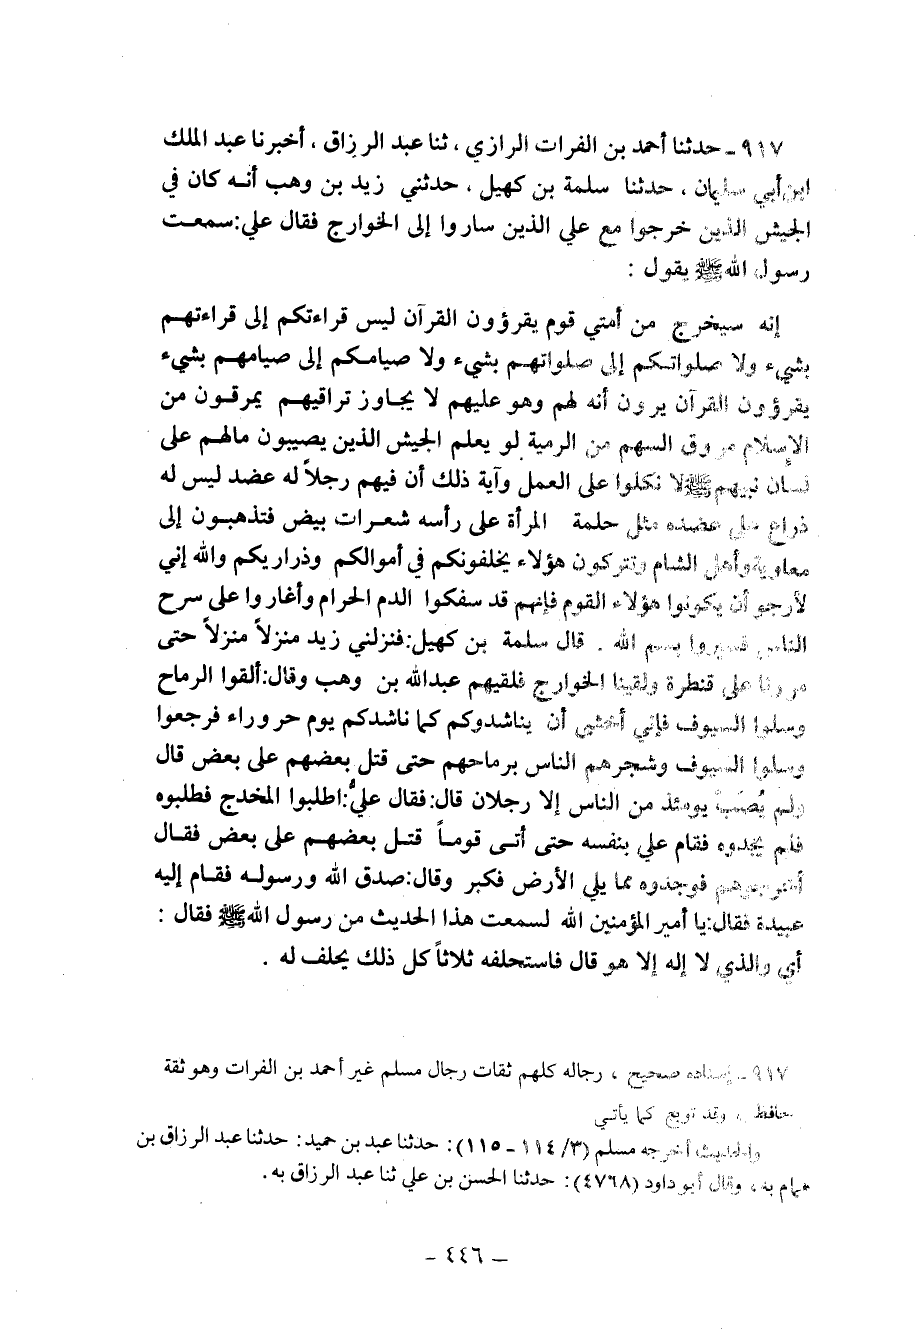 ٩١٧ ـ حدثنا أحمد بن الفرات الرازي ، ثنا عبد الرزاق ، أخبرنا عبد الملك
ابن أبي سليمان ، حدثنا سلمة بن كهيل ، حدثني زيد بن وهب أنه كان في
الجيش الذين خرجوا مع علي الذين ساروا إلى الخوارج فقال علي:سمعت
رسول الله ﷺ يقول :
إنه سيخرج من أمتي قوم يقرؤون القرآن ليس قراءتكم إلى قراءتهم
بشيء ولا صلواتكم إلى صلواتهم بشيء ولا صيامكم إلى صيامهم بشيء
يقرؤون القرآن يرون أنه لهم وهو عليهم لا يجاوز تراقيهم يمرقون من
الإسلام مروق السهم من الرمية لو يعلم الجيش الذين يصيبون مالهم على
لسان نبيهم ﷺ لا تكلوا على العمل وآية ذلك أن فيهم رجلاً له عضد ليس له
ذراع على عضده مثل حلمة المرأة على رأسه شعرات بيض فتذهبون إلى
معاوية وأهل الشام وتتركون هؤلاء يخلفونكم في أموالكم وذراريكم والله إني
لأرجو أن يكونوا هؤلاء القوم فإنهم قد سفكوا الدم الحرام وأغاروا على سرح
الناس فسيروا بسم الله . قال سلمة بن كهيل:فنزلني زيد منزلاً منزلاً حتى
مررنا على قنطرة ولقينا الخوارج فلقيهم عبدالله بن وهب وقال:ألقوا الرماح
وسلوا السيوف فإني أخشى أن يناشدوكم كما ناشدكم يوم حروراء فرجعوا
وسلوا السيوف وشجرهم الناس برماحهم حتى قتل بعضهم على بعض قال
ولم يُصَب يومئذ من الناس إلا رجلان قال:فقال عليُّ:اطلبوا المخدج فطلبوه
فلم يجدوه فقام علي بنفسه حتى أتى قوماً قتل بعضهم على بعض فقال
أخرجوهم فوجدوه مما يلي الأرض فكبر وقال:صدق الله ورسوله فقام إليه
عبيدة فقال:يا أمير المؤمنين الله لسمعت هذا الحديث من رسول الله ﷺ فقال :
أي والذي لا إله إلا هو قال فاستحلفه ثلاثاً كل ذلك يحلف له .
٩١٧ ـ إسناده صحيح ، رجاله كلهم ثقات رجال مسلم غير أحمد بن الفرات وهو ثقة
حافظ ، وقد توبع كما يأتي
والحديث أخرجه مسلم (٣/ ١١٤ ـ ١١٥): حدثنا عبد بن حميد: حدثنا عبد الرزاق بن
همام به ، وقال أبو داود (٤٧٦٨): حدثنا الحسن بن علي ثنا عبد الرزاق به.
ـ ٤٤٦ ـ